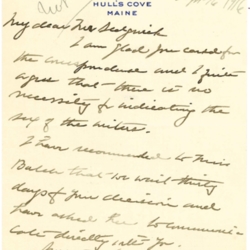 HULL'S COVE
MAINE
My dear Mr Sedgwick
I am glad you cared for
the correspondence and I quite
agree that there is no
necessity for indicating the
sex of the writer.
I have recommended to Miss
that we wait thirty
days of your decision and
have asked her to communi-
cate directly with you